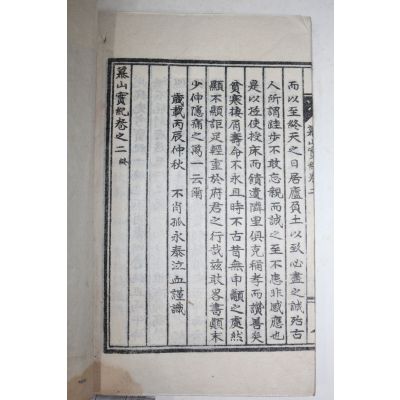 而以至終天之日居廬負土以致心盡之誠殆古
人所謂跬步不敢忘親而誠之至不患非感應也
是以任使授床而饋遺隣里俱克稱孝而讚善矣
貧寒棲屑壽命不永且時不古昔無申顯之處然
顯不顯詎足輕重於府君之行哉玆敢畧書顚末
少伸隱痛之萬一云爾
歲載丙辰仲秋 不肖孤永泰泣血謹識
慕山實紀卷之二 終
慕山實紀卷二